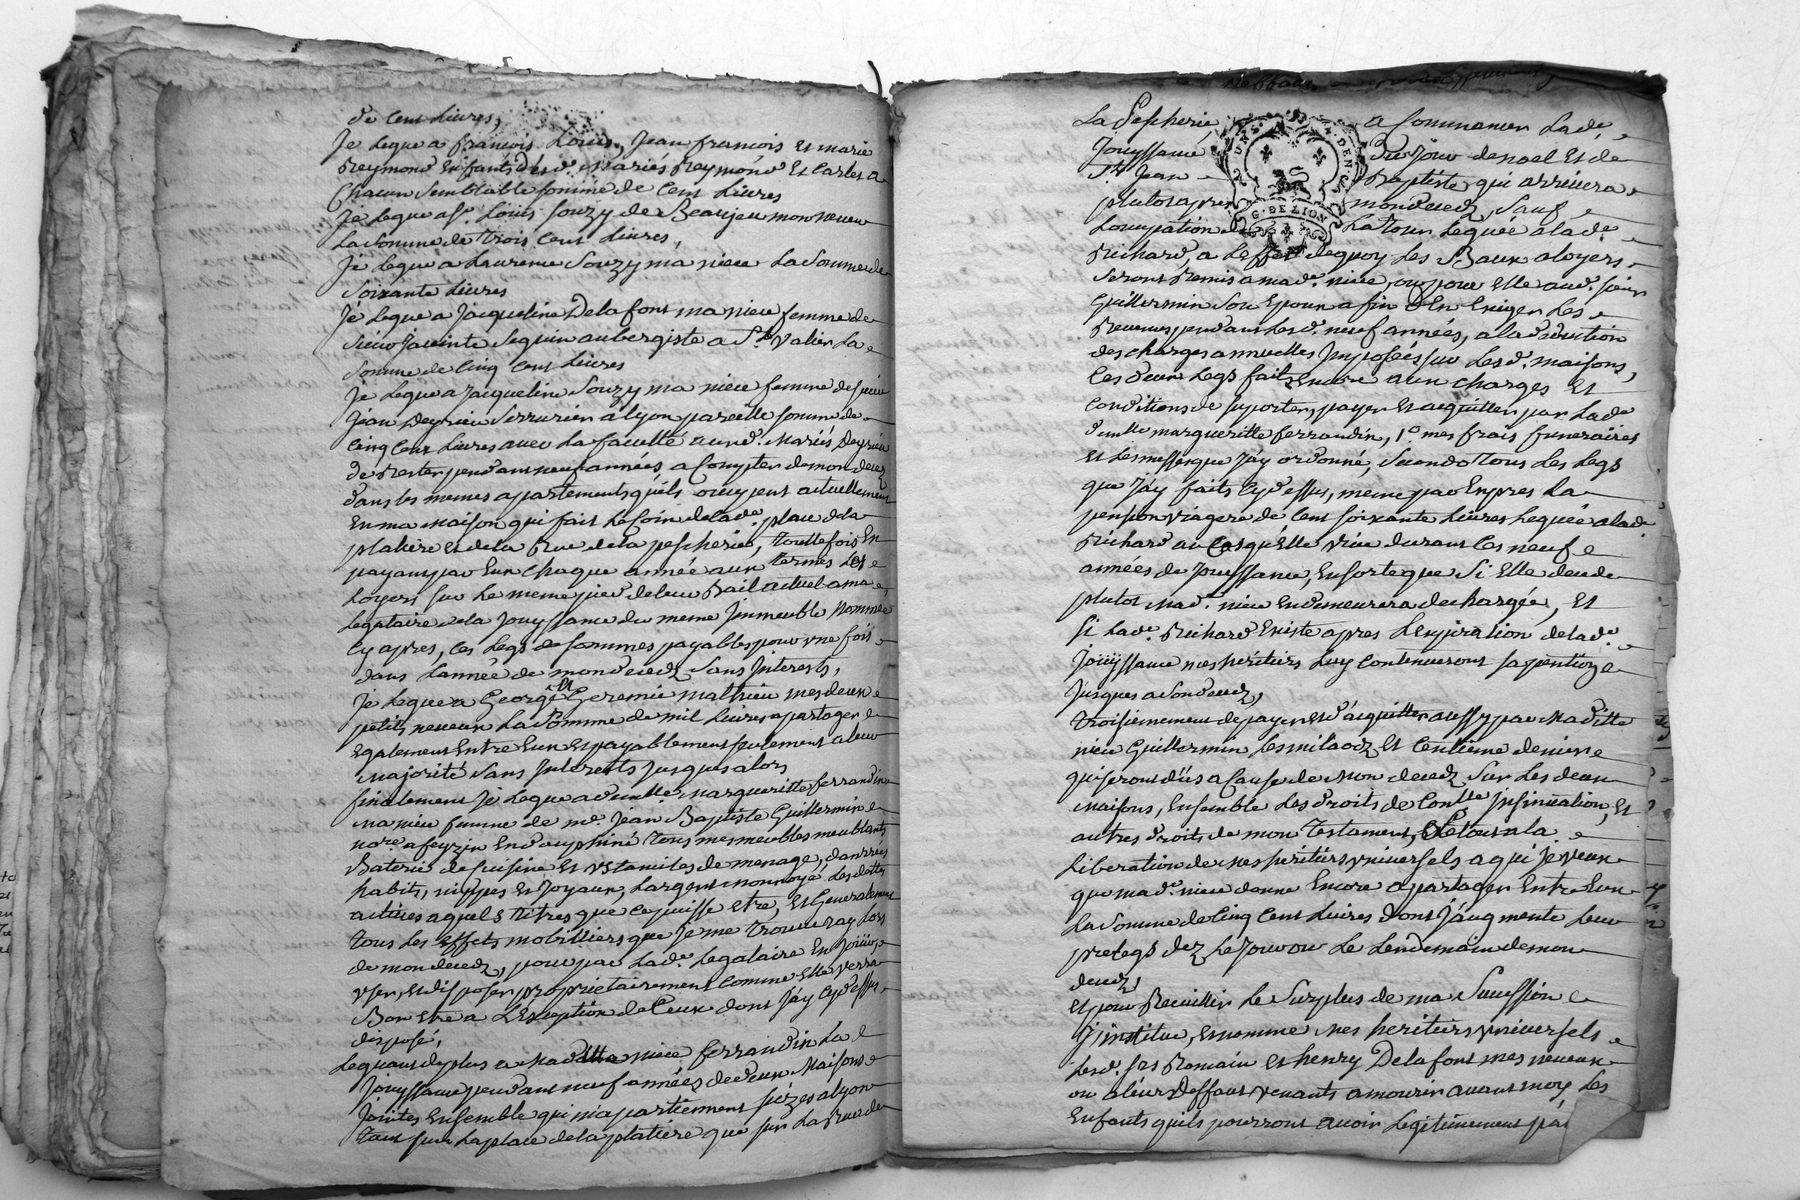 de Cent Livres,
Je Legue a francois Louis, Jean francois et marie
Reymond Enfants desd. Mariés Reymond et Carles a
Chacun Semblable somme de Cent Livres
Je Legue a Sr. Loüis Souzy de Beaujeu mon neveu
La Somme de trois Cent Livres,
Je Legue a Laurence Souzy ma niece La Somme de
Soixante Livres
Je Legue a Jacqueline Delafont ma niece femme de
Sieur Jacinte Seguin aubergiste a St. Valier La
Somme de Cinq Cent Livres
Je Legue a Jacqueline Souzy ma niece femme de Sieur
Jean Deyrieu Serrurier a Lyon pareille somme de
Cinq Cent Livres avec La faculté auxd. Mariés Deyrieu
de Rester pendant neuf années, a Compter de mon decez
dans les memes apartements qu'ils occupent actuellement
En ma Maison qui fait Le Coin de Lade. place de la
platiere et de la Rue de la pescherie, touttefois En
payant par Eux Chaque année aux termes Les
Loyers sur Le meme pied de leur Bail actuel a ma
Legataire de la Jouyssance du meme Immeuble Nommée
Cy apres, Ces Legs de sommes payables pour une fois
dans L'année de mon decedz Sans Interests,
Je Legue a George et Geremie mathieu mes deux
petits neveux La Somme de mil Livres a partager
Egalement Entre Eux et payable seulement a leur
Majorité Sans Interests Jusques alors
finalement Je Legue a demlle. Margueritte ferrandin
Ma niece femme de me. Jean Baptiste Guillermin
nore. a feyzin En dauphiné tous mes meubles meublants
Baterie de Cuisine et Ustanciles de menage, danrrées
habits, nippes et Joyaux, L'argent monnoyé Les dettes
actives a quels titres que ce puisse etre, et Generalement
tous Les Effets mobilliers que Je me trouveray Lors
de mon decedz, pour par Lade. Legataire En Jouïr,
User, et disposer proprietairement Comme Elle verra
Bon etre a L'Exception de Ceux dont J'ay Cy dessus
disposé,
Leguant de plus a Maditte niece ferrandin La
Jouyssance pendant neuf années de deux Maisons
Jointes Ensemble qui m'apartiennent sizes a Lyon
tant sur La place de la platiere que sur La Rue de
La Pescherie a Commancer Lade.
Jouyssance Du Jour de noel et de
St. Jean Baptiste qui arrivera
plutot apres mon decedz, Sauf
L'ocupation de La tour Leguée a lade.
Richard, a L'effet de quoy Les Baux a Loyers
Seront Remis a made. niece, ou pour Elle aud. sieur
Guillermin Son Epoux afin d'En Exiger Les
Revenus pendant Lesd. neuf années, a la deduction
des charges annuelles Imposées sur Lesd. maisons,
Ces deux Legs faits Encore aux Charges et
Conditions de suporter, payer et acquitter par Lade.
demlle. margueritte ferrandin, 1o. mes frais funeraires
et Les messes que J'ay ordonné, Secondo tous Les Legs
que J'ay faits Cy dessus, meme par Expres La
pension viagere de Cent soixante Livres Leguée a lade.
Richard au Cas qu'Elle vive durant Ces neuf
années de Jouyssance, En sorte que Si Elle decede
plutot Mad. niece En demeurera dechargée, Et
Si Lade. Richard Existe apres L'Expiration de lade.
Jouyssance mes héritiers Luy Continueront sa pention
Jusques a Son decedz,
Troisiemement de payer et d'acquitter aussy par Maditte
niece Guillermin Les milaodz et Centieme denier
qui seront dûs a Cause de Mon decedz Sur Les deux
Maisons, Ensemble Les droits de Conlle. Insinuation, Et
autres droits de mon testament, Le tout a la
Liberation de mes héritiers universels a qui Je veux
que mad. niece donne Encore a partager Entre Eux
La Somme de Cinq Cent Livres dont J'augmente Leur
prelegs dez Le Jour ou Le Lendemain de mon
decedz,
Et pour Recuillir Le Surplus de ma Succession
J'institue, et nomme mes heritiers universels
Lesd. Srs Romain et henry Delafont mes neveux
ou a leur deffaut venants a mourir avant moy Les
Enfants qu'ils pourront avoir Legitimement par
G. DE LION